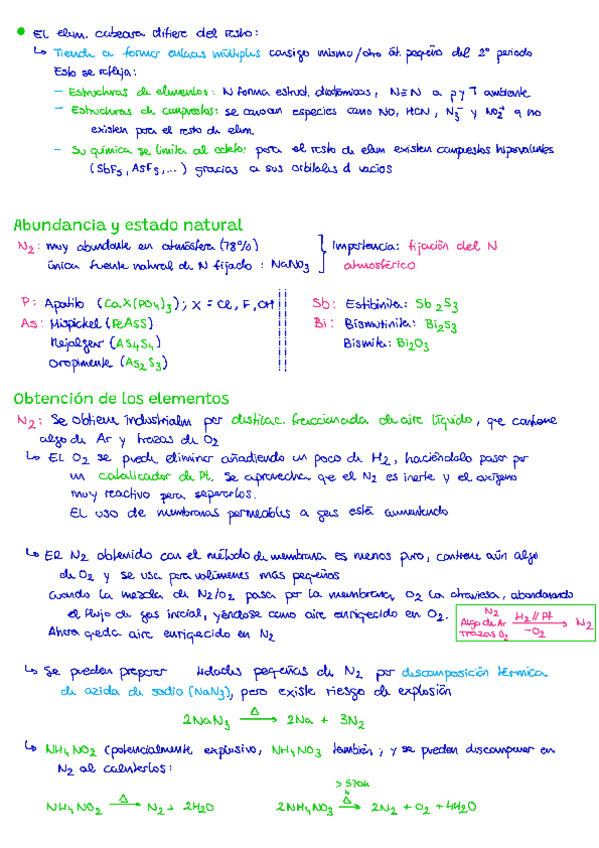 • EL elem. cabecera difiere del resto:
↳ Tiende a formar enlaces múltiples consigo mismo/otro át. pequeño del 2º periodo
Esto se refleja:
- Estructuras de elementos: N forma estruct. diatómicas, N≡N a p y T ambiente
- Estructuras de compuestos: se conocen especies como NO, HCN, N3⁻ y NO2⁺ q no
existen para el resto de elem.
- Su química se limita al octeto: para el resto de elem existen compuestos hipervalentes
(SbF5, AsF5, ...) gracias a sus orbitales d vacíos
Abundancia y estado natural
N2: muy abundante en atmósfera (78%)
única fuente natural de N fijado: NaNO3
Importancia: fijación del N
atmosférico
P: Apatito (CaX(PO4)3); X = Cl, F, OH
As: Mispickel (FeAsS)
Rejalgar (As4S4)
Oropimente (As2S3)
Sb: Estibinita: Sb2S3
Bi: Bismutinita: Bi2S3
Bismita: Bi2O3
Obtención de los elementos
N2: Se obtiene industrialm por destilac. fraccionada de aire líquido, que contiene
algo de Ar y trazas de O2
↳ EL O2 se puede eliminar añadiendo un poco de H2, haciéndolo pasar por
un catalizador de Pt. Se aprovecha que el N2 es inerte y el oxígeno
muy reactivo para separarlos.
EL uso de membranas permeables a gas está aumentando
↳ El N2 obtenido con el método de membrana es menos puro, contiene aún algo
de O2 y se usa para volúmenes más pequeños
Cuando la mezcla de N2/O2 pasa por la membrana, O2 la atraviesa, abandonando
el flujo de gas inicial, yéndose como aire enriquecido en O2.
Ahora queda aire enriquecido en N2
N2
Algo de Ar
Trazas O2
H2 // Pt
→
-O2
N2
↳ Se pueden preparar tidades pequeñas de N2 por descomposición térmica
de azida de sodio (NaN3), pero existe riesgo de explosión
2NaN3 —Δ→ 2Na + 3N2
↳ NH4NO2 (potencialmente explosivo, NH4NO3 también; y se pueden descomponer en
N2 al calentarlos:
NH4NO2 —Δ→ N2 + 2H2O
> 570K
2NH4NO3 —Δ→ 2N2 + O2 + 4H2O